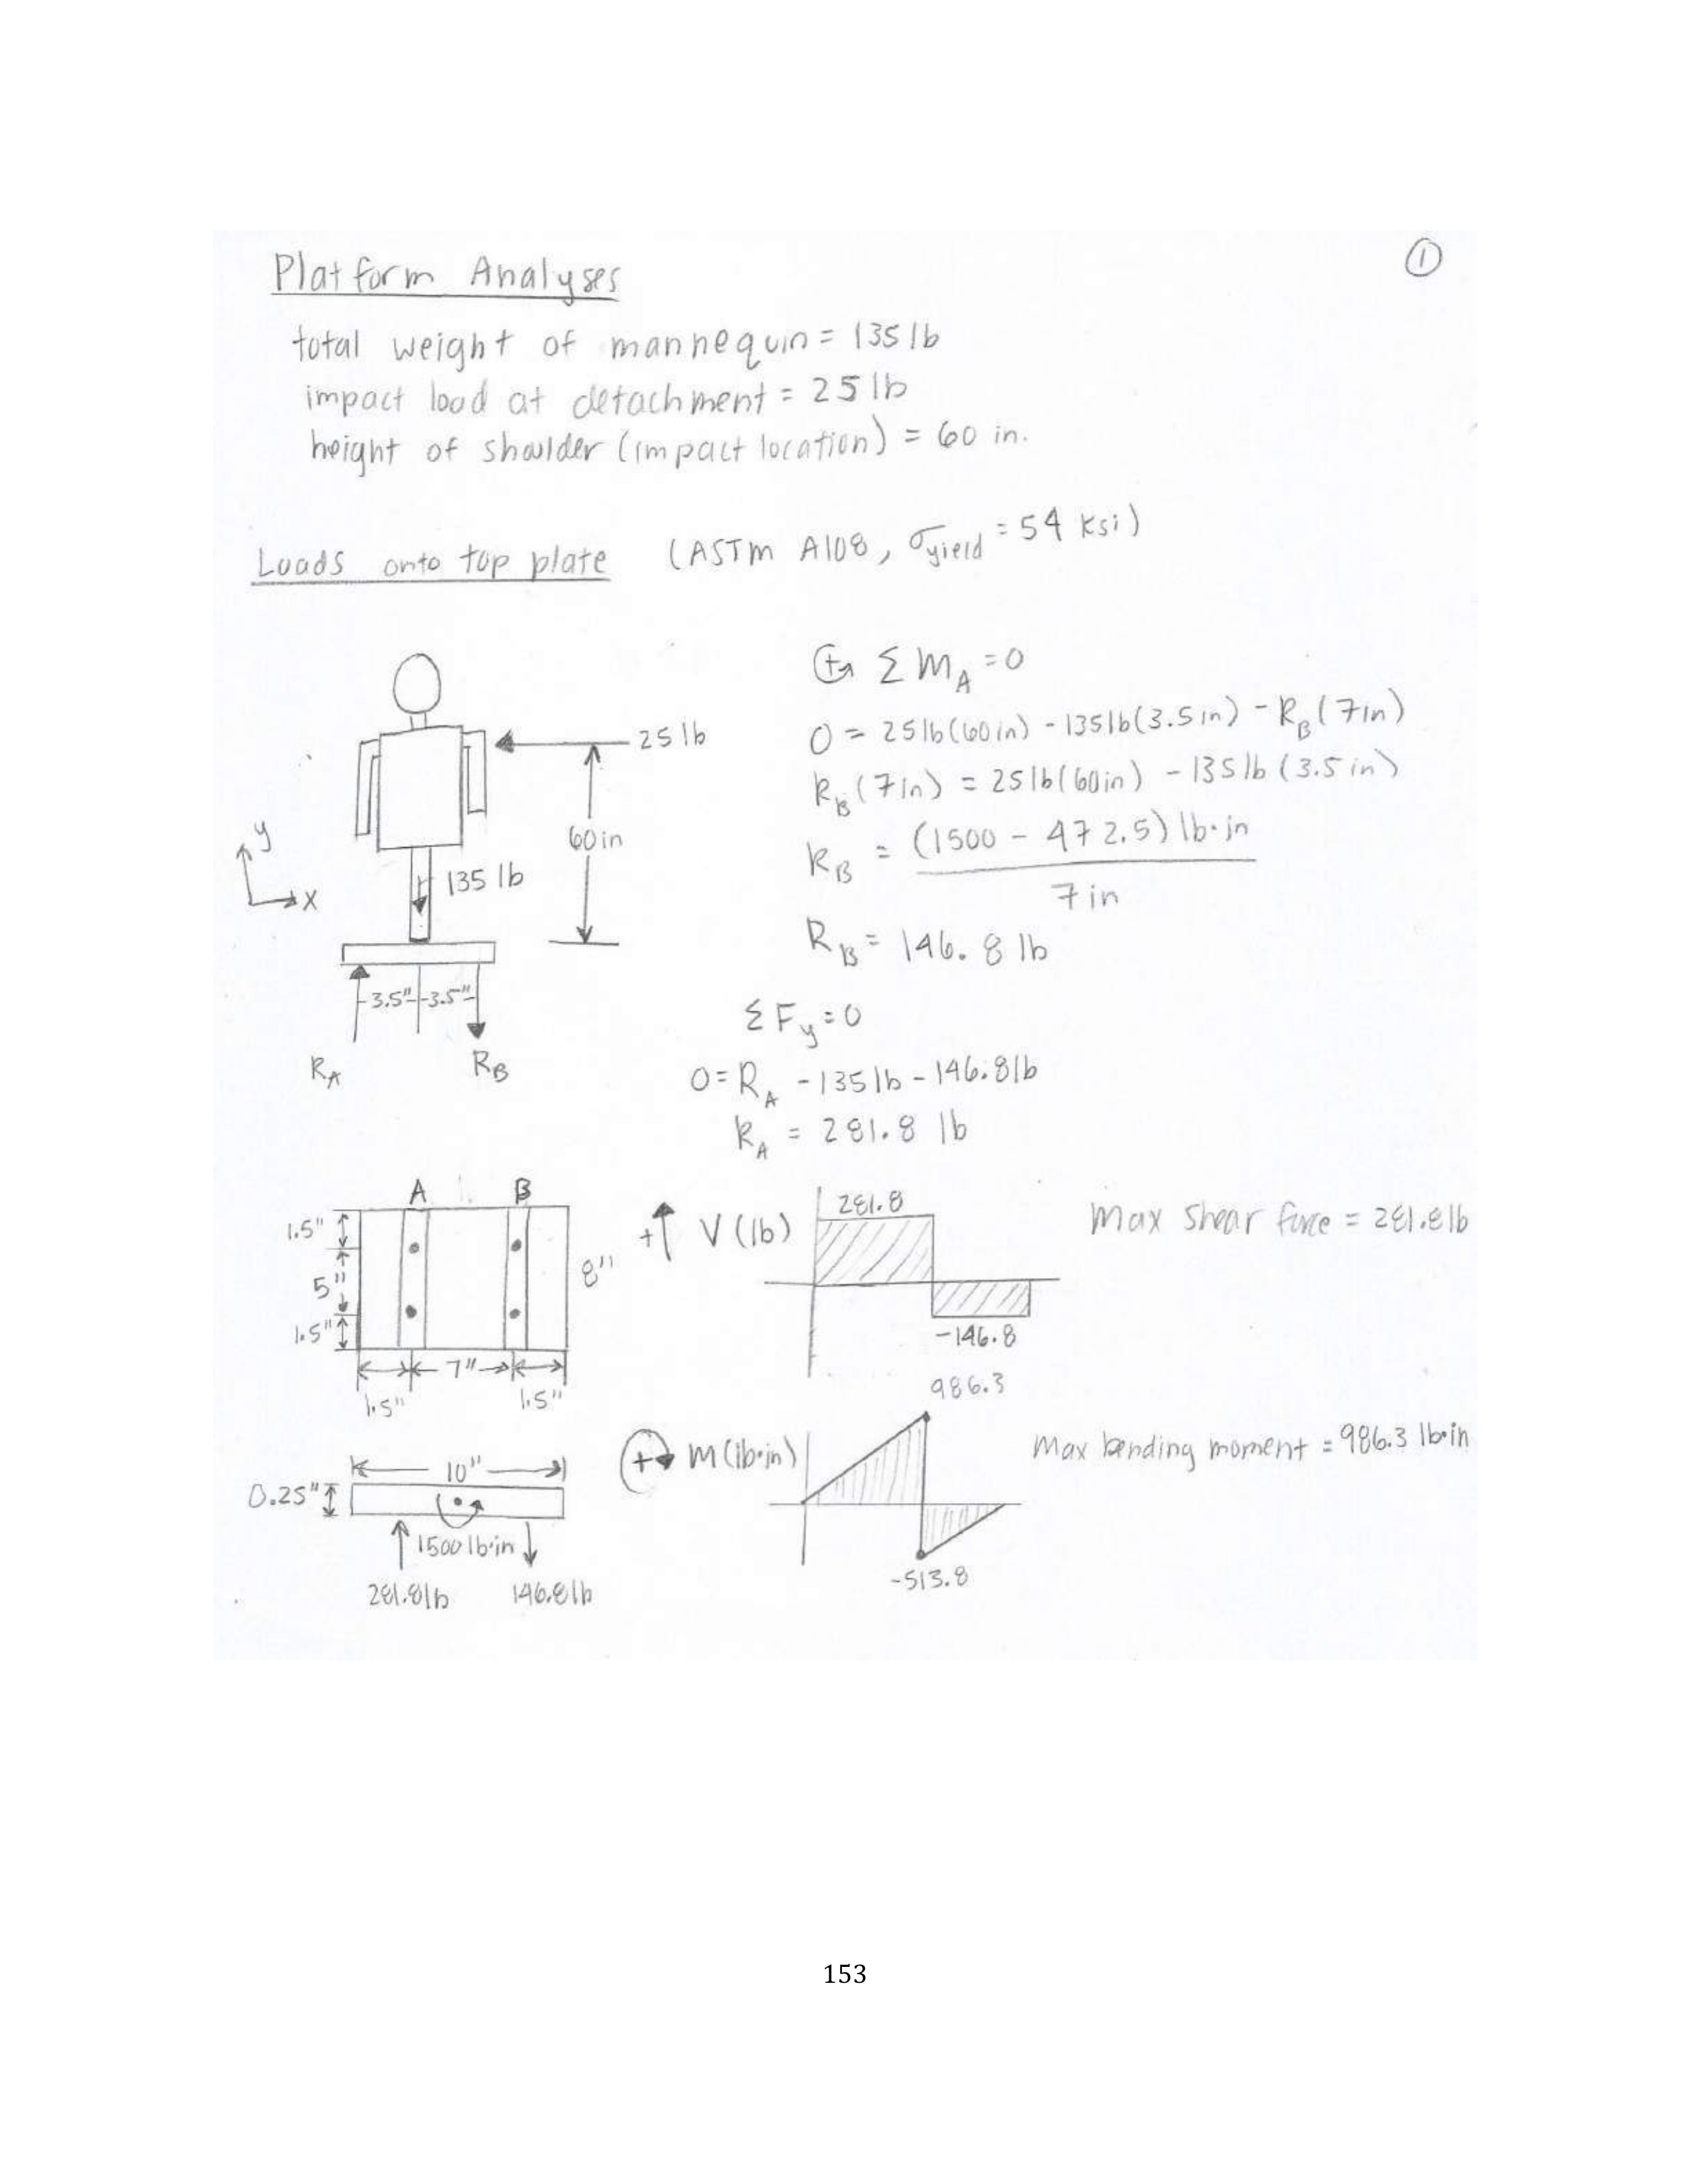 Platform Analyses
①
total weight of mannequin = 135 lb
impact load at detachment = 25 lb
height of shoulder (impact location) = 60 in.
Loads onto top plate (ASTM A108, σyield = 54 ksi)
25 lb
60 in
135 lb
y
x
3.5" 3.5"
RA RB
+ ΣMA = 0
0 = 25lb(60in) - 135lb(3.5in) - RB(7in)
RB(7in) = 25lb(60in) - 135lb(3.5in)
RB = (1500 - 472.5) lb·in
7 in
RB = 146.8 lb
ΣFy = 0
0 = RA - 135lb - 146.8lb
RA = 281.8 lb
A B
1.5"
5"
1.5"
8"
7"
1.5" 1.5"
+ V (lb)
281.8
-146.8
Max shear force = 281.8lb
10"
0.25"
1500 lb·in
281.8lb 146.8lb
+ M (lb·in)
986.3
-513.8
Max bending moment = 986.3 lb·in
153